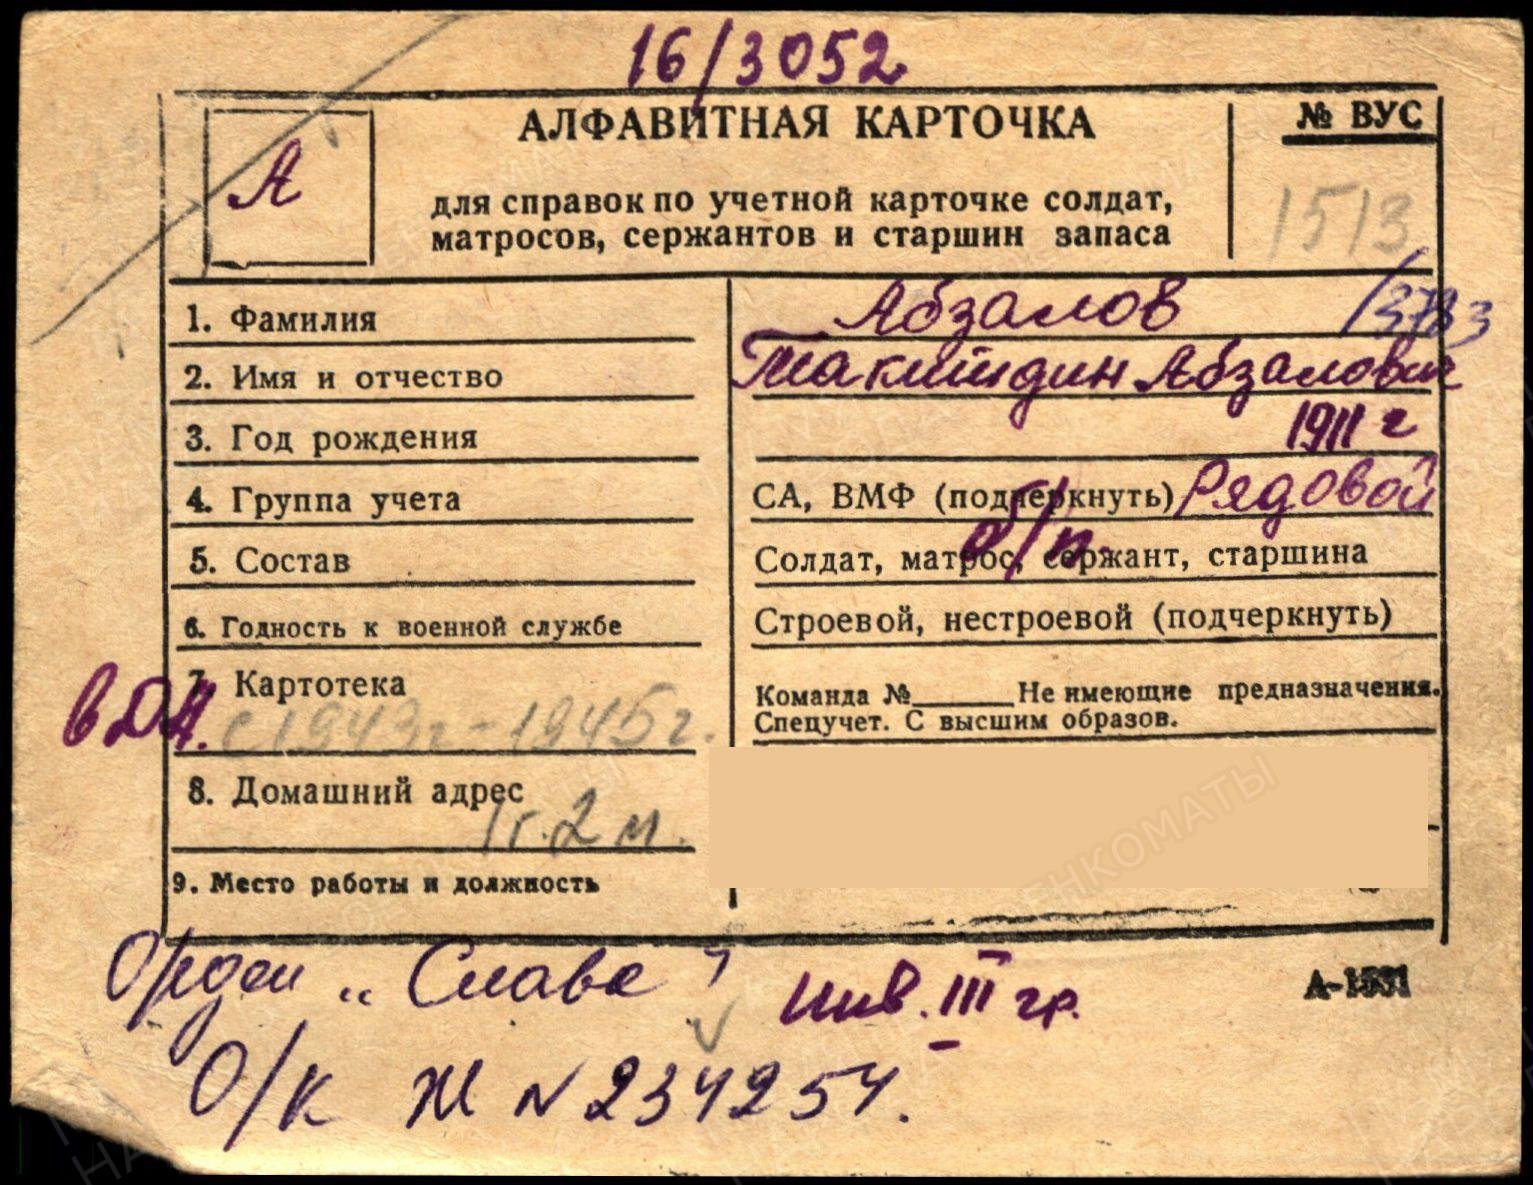 16/3052
А
АЛФАВИТНАЯ КАРТОЧКА
для справок по учетной карточке солдат,
матросов, сержантов и старшин запаса
№ ВУС
1513
1. Фамилия
Абзалов
2. Имя и отчество
Такийтдин Абзалович
3. Год рождения
1911 г
4. Группа учета
СА, ВМФ (подчеркнуть) Рядовой
б/п.
5. Состав
Солдат, матрос, сержант, старшина
6. Годность к военной службе
Строевой, нестроевой (подчеркнуть)
7. Картотека
Команда № Не имеющие предназначения.
Спецучет. С высшим образов.
с 1943г - 1945г.
8. Домашний адрес
1г. 2 м.
9. Место работы и должность
Орден „Слава"
инв. III гр.
А-1531
О/к Ж N 234254.